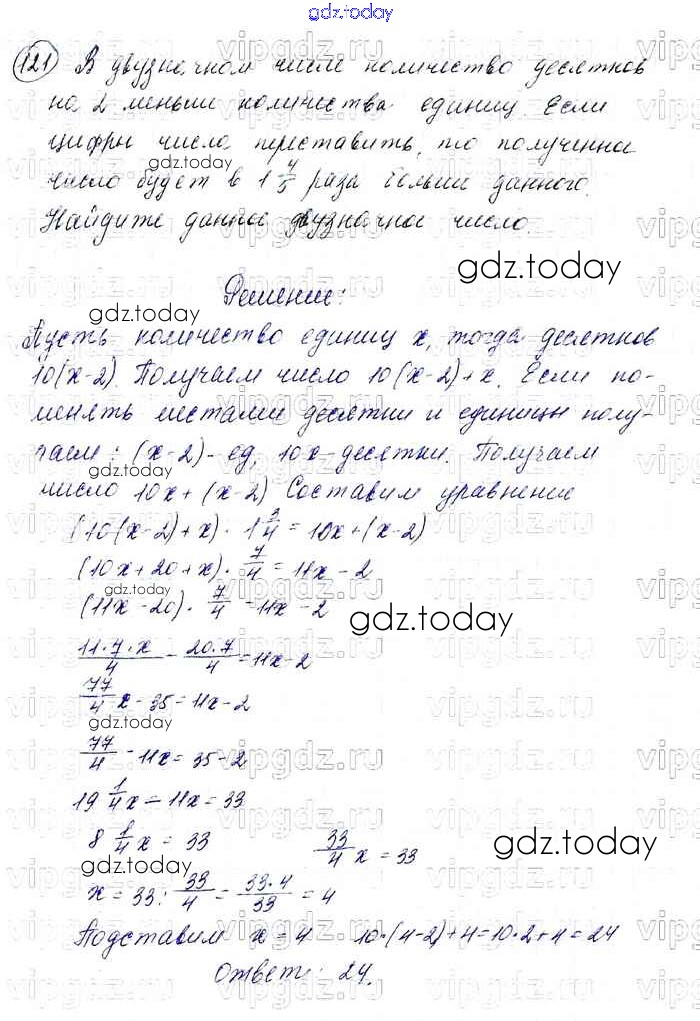 gdz.today
121 В двузначном числе количество десятков
на 2 меньше количества единиц. Если
цифры числа переставить, то полученное
число будет в 1 4/5 раза больше данного.
Найдите данное двузначное число.
Решение:
Пусть количество единиц x, тогда десятков
10(x-2). Получаем число 10(x-2)+x. Если по-
менять местами десятки и единицы полу-
чаем: (x-2)- ед, 10x- десятки. Получаем
число 10x+(x-2) Составим уравнение
(10(x-2)+x)·1 3/4=10x+(x-2)
(10x+20+x)·7/4=11x-2
(11x-20)·7/4=11x-2
11·7·x/4 - 20·7/4=11x-2
77/4 x-35=11x-2
77/4-11x=35-2
19 1/4x-11x=33
8 1/4x=33 33/4 x=33
x=33:33/4=33·4/33=4
Подставим x=4 10·(4-2)+4=10·2+4=24
Ответ: 24.